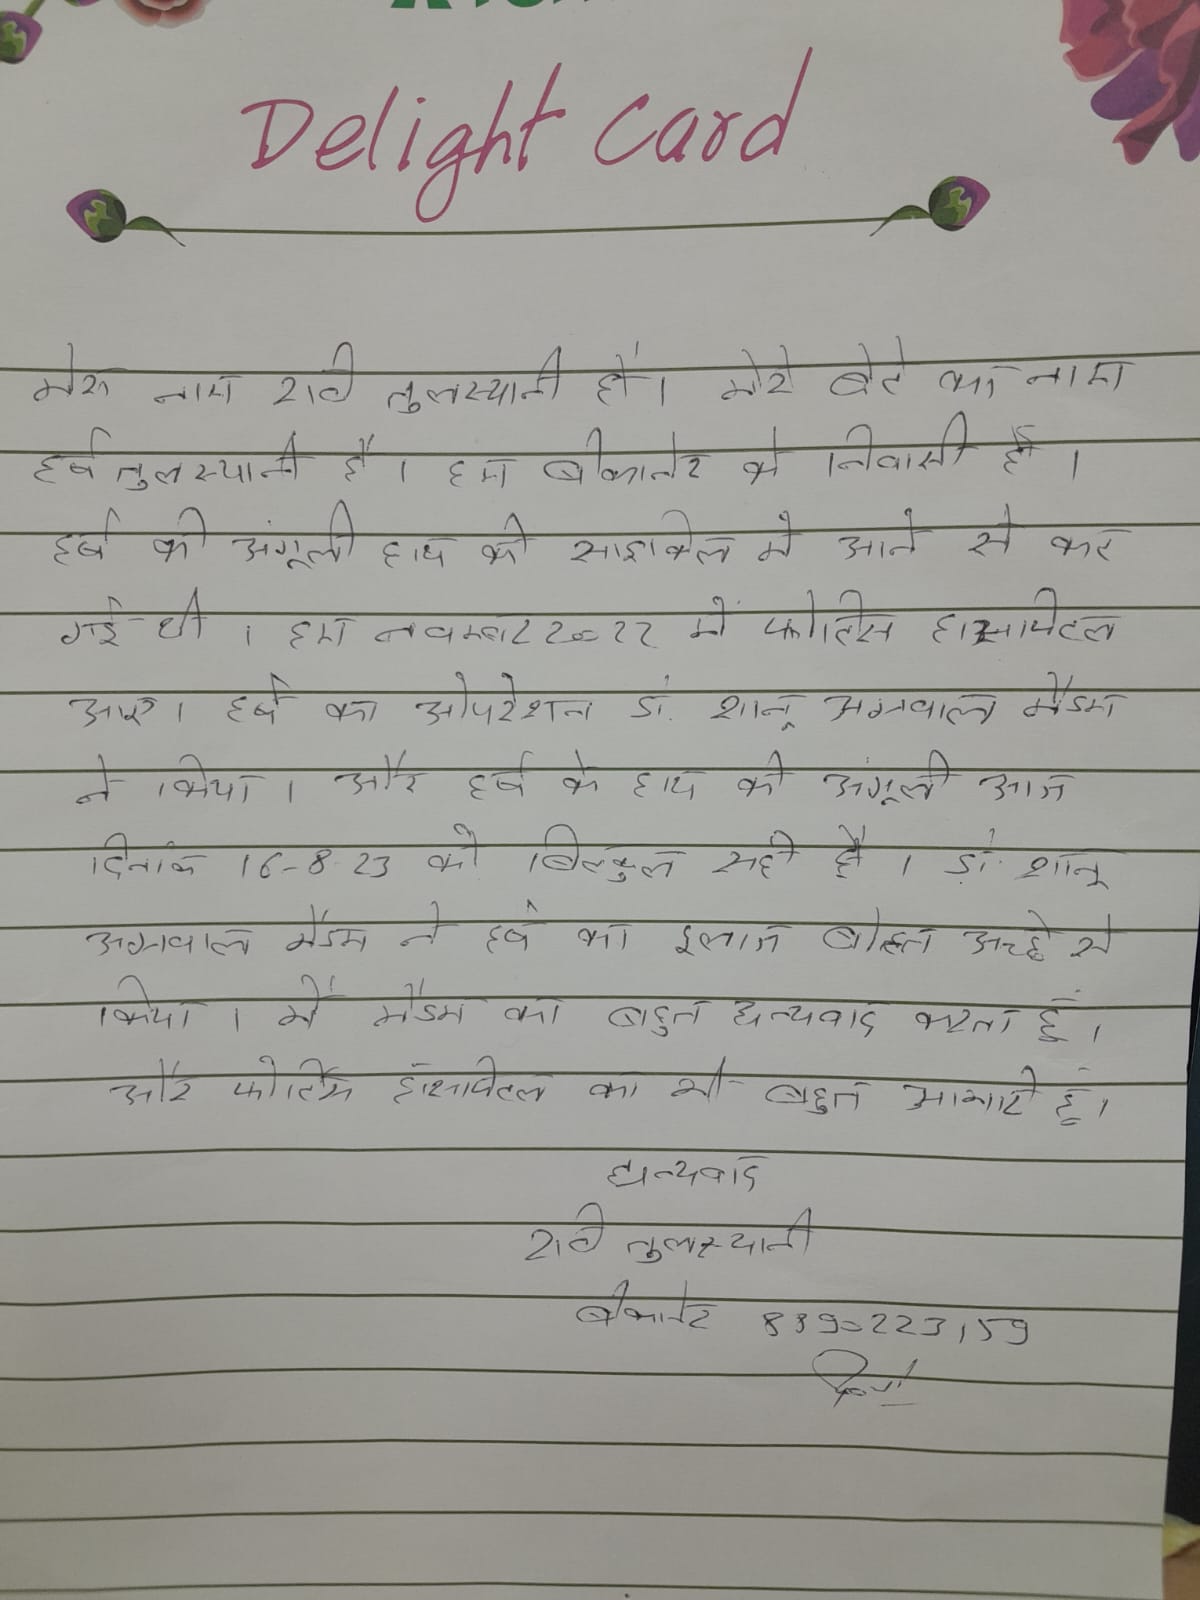 Delight Card
मेरा नाम रवि तुलस्यानी है। मेरे बेटे का नाम
हर्ष तुलस्यानी है। हम बीकानेर के निवासी हैं।
हर्ष की अंगूली हाथ की साइकिल में आने से कट
गई थी। हम नवम्बर 2022 में फोर्टिस हास्पिटल
आए। हर्ष का ओपरेशन डॉ. शानू अग्रवाल मैडम
ने किया। और हर्ष के हाथ की अंगूली आज
दिनांक 16-8-23 को बिल्कुल सही है। डॉ. शानू
अग्रवाल मैडम ने हर्ष का इलाज बोहत अच्छे से
किया। मैं मैडम का बहुत धन्यवाद करता हूँ।
और फोर्टिस हॉस्पिटल का भी बहुत आभारी हूँ।
धन्यवाद
रवि तुलस्यानी
बीकानेर